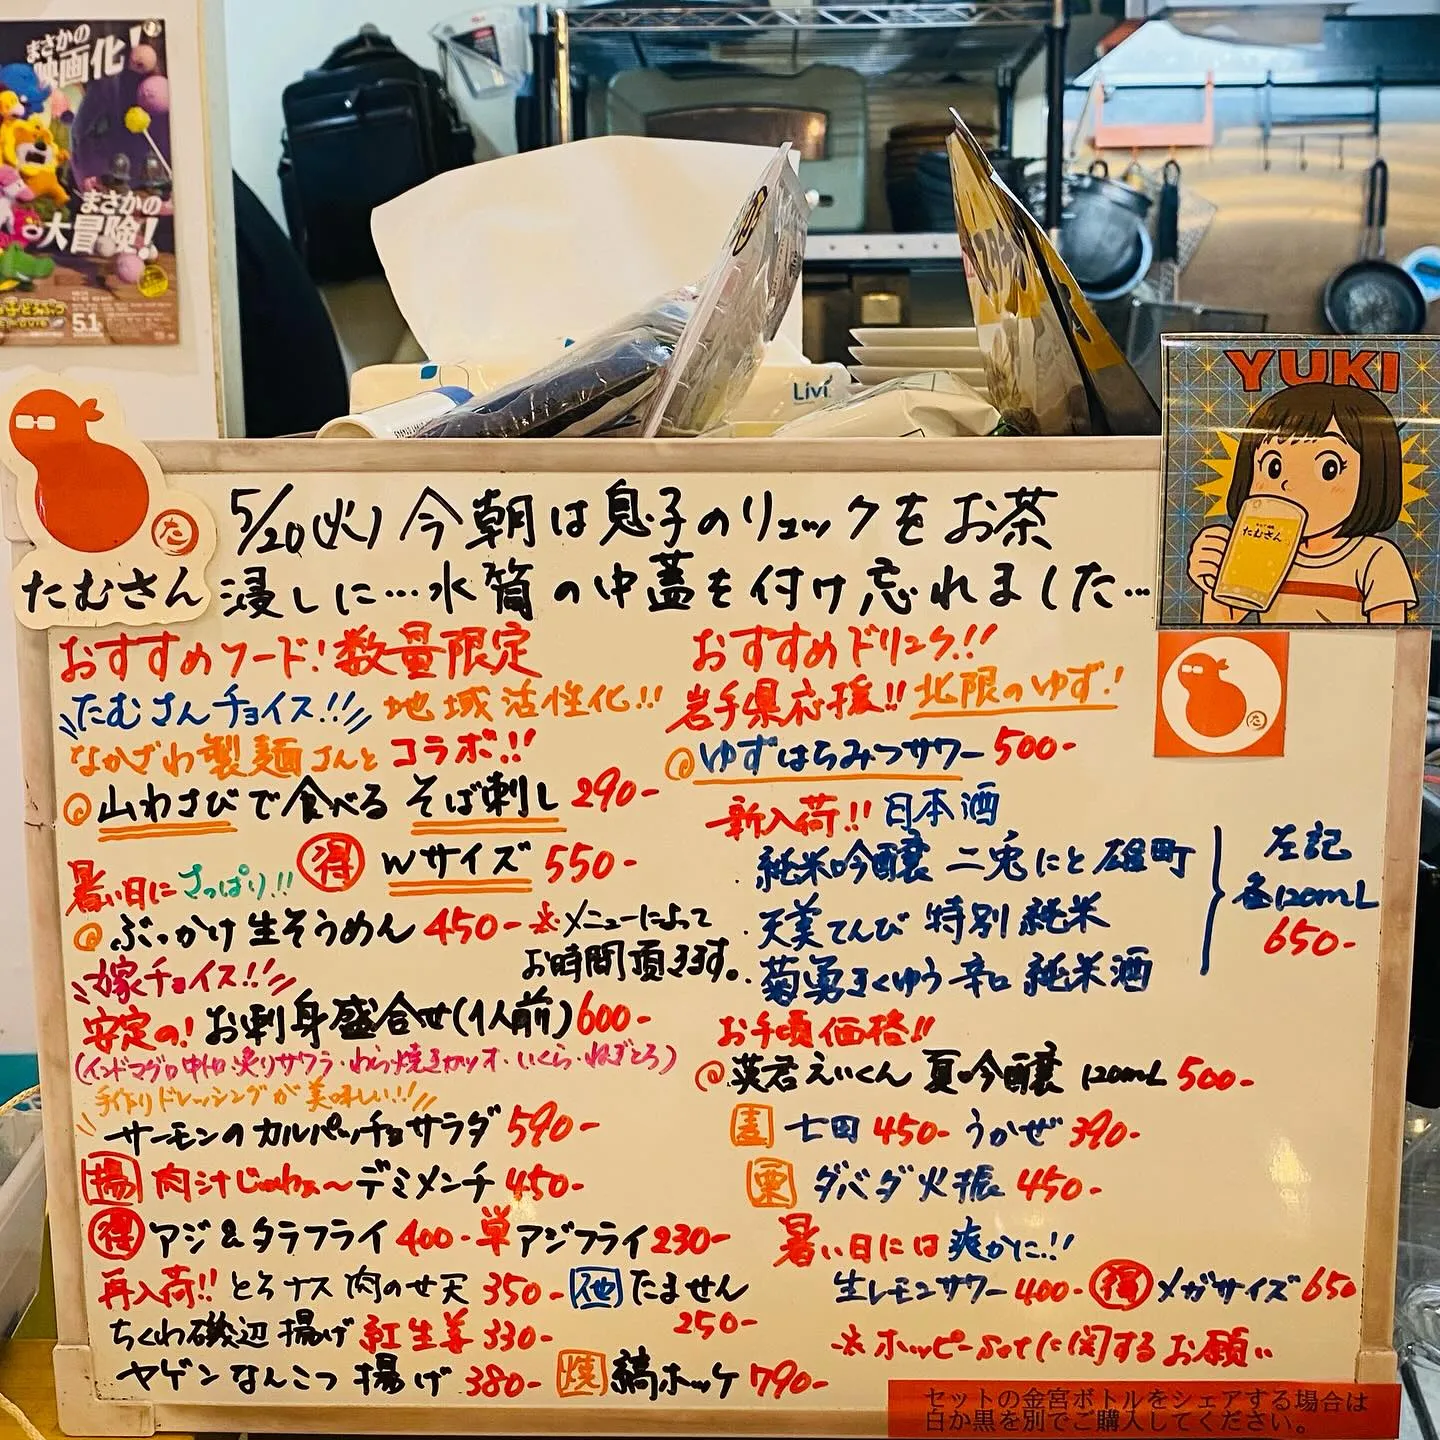 まさかの
映画化!
まさかの
大冒険!
5.1
Livi
YUKI
たむさん
たむさん
5/20(火)今朝は息子のリュックをお茶
浸しに…水筒の中蓋を付け忘れました…
おすすめフード!数量限定
たむさんチョイス!! 地域活性化!!
なかざわ製麺さんとコラボ!!
山わさびで食べるそば刺し 290-
得 Wサイズ 550-
暑い日にさっぱり!!
ぶっかけ生そうめん 450-
※メニューによって
お時間頂きます。
嫁チョイス!!
安定の!お刺身盛合せ(1人前)600-
(インドマグロ中トロ・炙りサワラ・わら焼きカツオ・いくら・ねぎとろ)
手作りドレッシングが美味しい!!
サーモンのカルパッチョサラダ 590-
揚 肉汁じゅわぁ〜デミメンチ 450-
得 アジ&タラフライ 400- 単アジフライ 230-
再入荷!! とろナス肉のせ天 350- 他 たません
250-
ちくわ磯辺揚げ紅生姜 330-
ヤゲンなんこつ揚げ 380- 焼 縞ホッケ 790-
おすすめドリンク!!
岩手県応援!! 北限のゆず!
ゆずはちみつサワー 500-
新入荷!! 日本酒
・純米吟醸 二兎にと 雄町
・天美てんび 特別純米
・菊勇きくゆう 辛口 純米酒
左記
各120mL
650-
お手頃価格!!
英君えいくん 夏吟醸 120mL 500-
麦 七田 450- うかぜ 390-
栗 ダバダ火振 450-
暑い日には爽かに!!
生レモンサワー 400- 得 メガサイズ 650
※ホッピーsetに関するお願い
セットの金宮ボトルをシェアする場合は
白か黒を別でご購入してください。